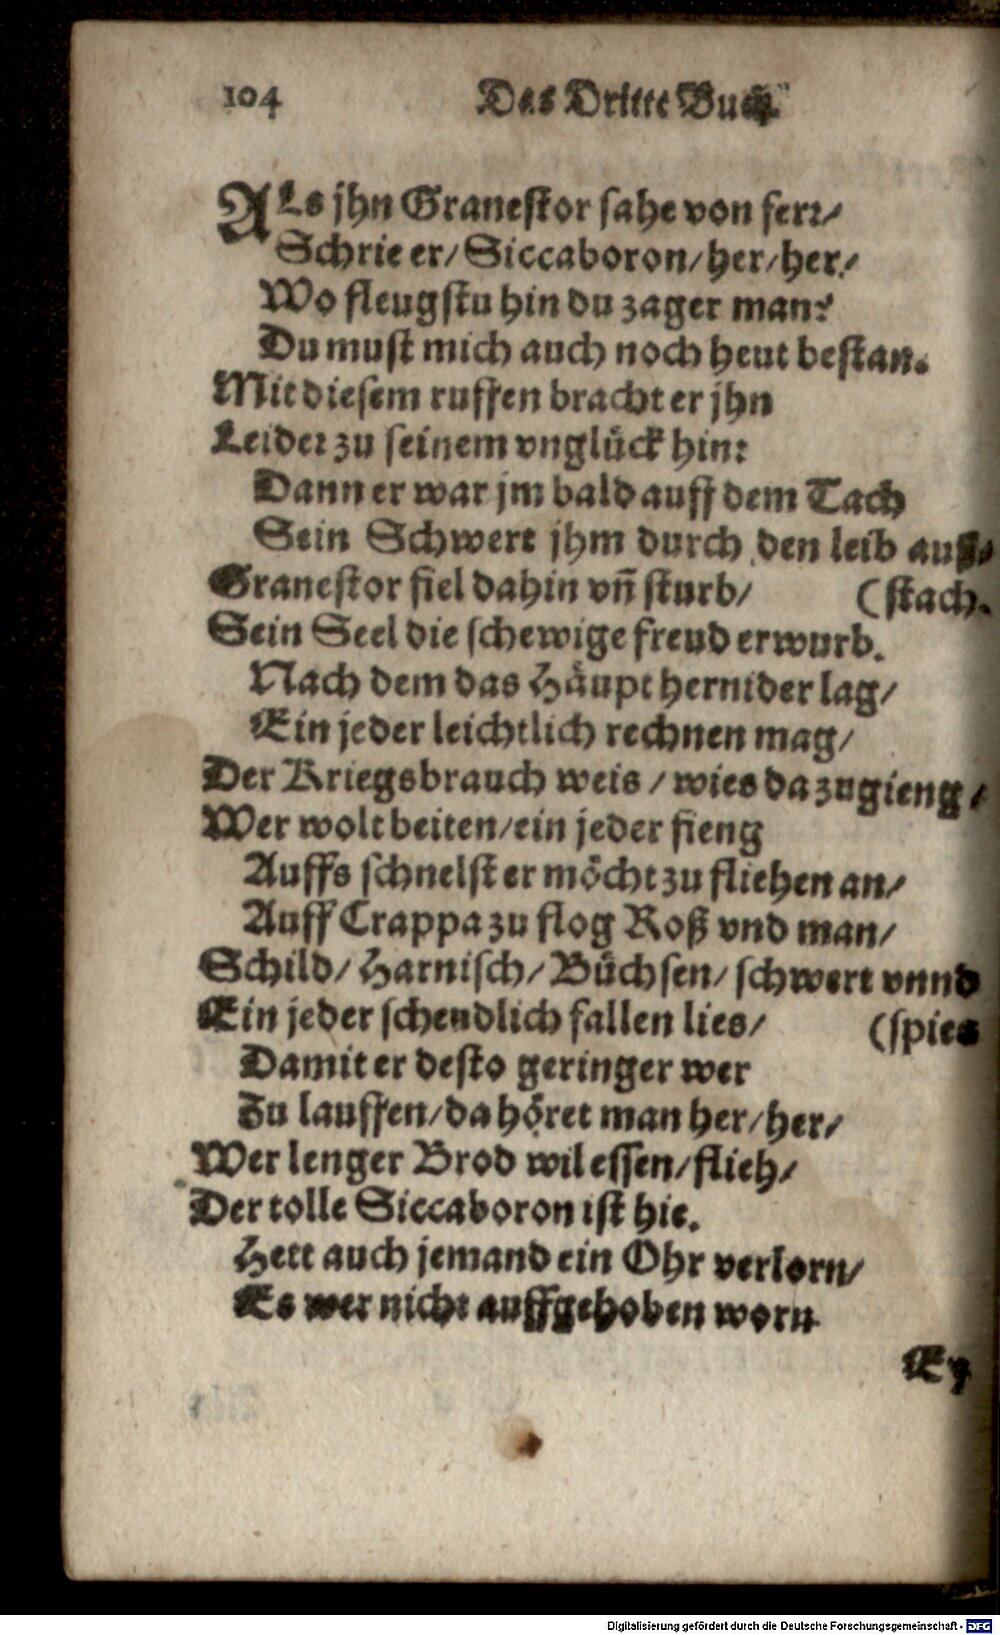 104 Das Dritte Buch.
ALs jhn Granestor sahe von ferr/
Schrie er/ Siccaboron/ her/ her/
Wo fleugstu hin du zager man?
Du must mich auch noch heut bestan.
Mit diesem ruffen bracht er jhn
Leider zu seinem vnglück hin:
Dann er war jm bald auff dem Tach
Sein Schwert jhm durch den leib auß-
Granestor fiel dahin vñ sturb/ (stach.
Sein Seel die schewige freud erwurb.
Nach dem das Häupt hernider lag/
Ein jeder leichtlich rechnen mag/
Der Kriegsbrauch weis / wies da zugieng/
Wer wolt beiten/ ein jeder fieng
Auffs schnelst er möcht zu fliehen an/
Auff Crappa zu flog Roß vnd man/
Schild/ Harnisch/ Büchsen/ schwert vnnd
Ein jeder schendlich fallen lies/ (spies
Damit er desto geringer wer
Zu lauffen/ da höret man her/ her/
Wer lenger Brod wil essen/ flieh/
Der tolle Siccaboron ist hie.
Hett auch jemand ein Ohr verlorn/
Es wer nicht auffgehoben worn
Ey
Digitalisierung gefördert durch die Deutsche Forschungsgemeinschaft - DFG